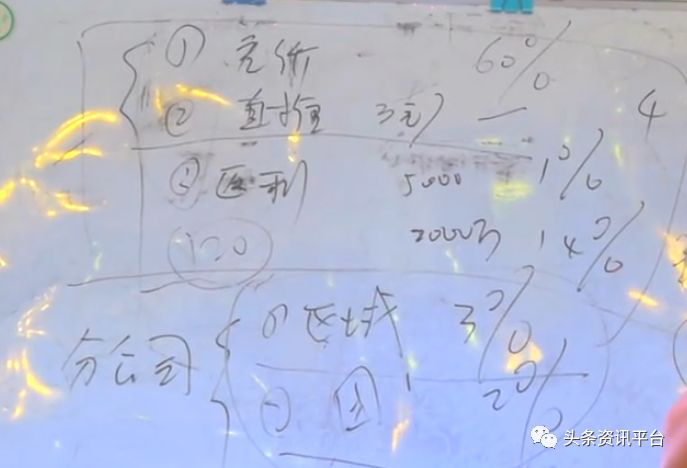 ① 充价 60%
② 直推 3元 — 4
③ 返利 5000 1%
120 2000万 14%
分公司 ① 区域 3%
② 团 2%
头条资讯平台